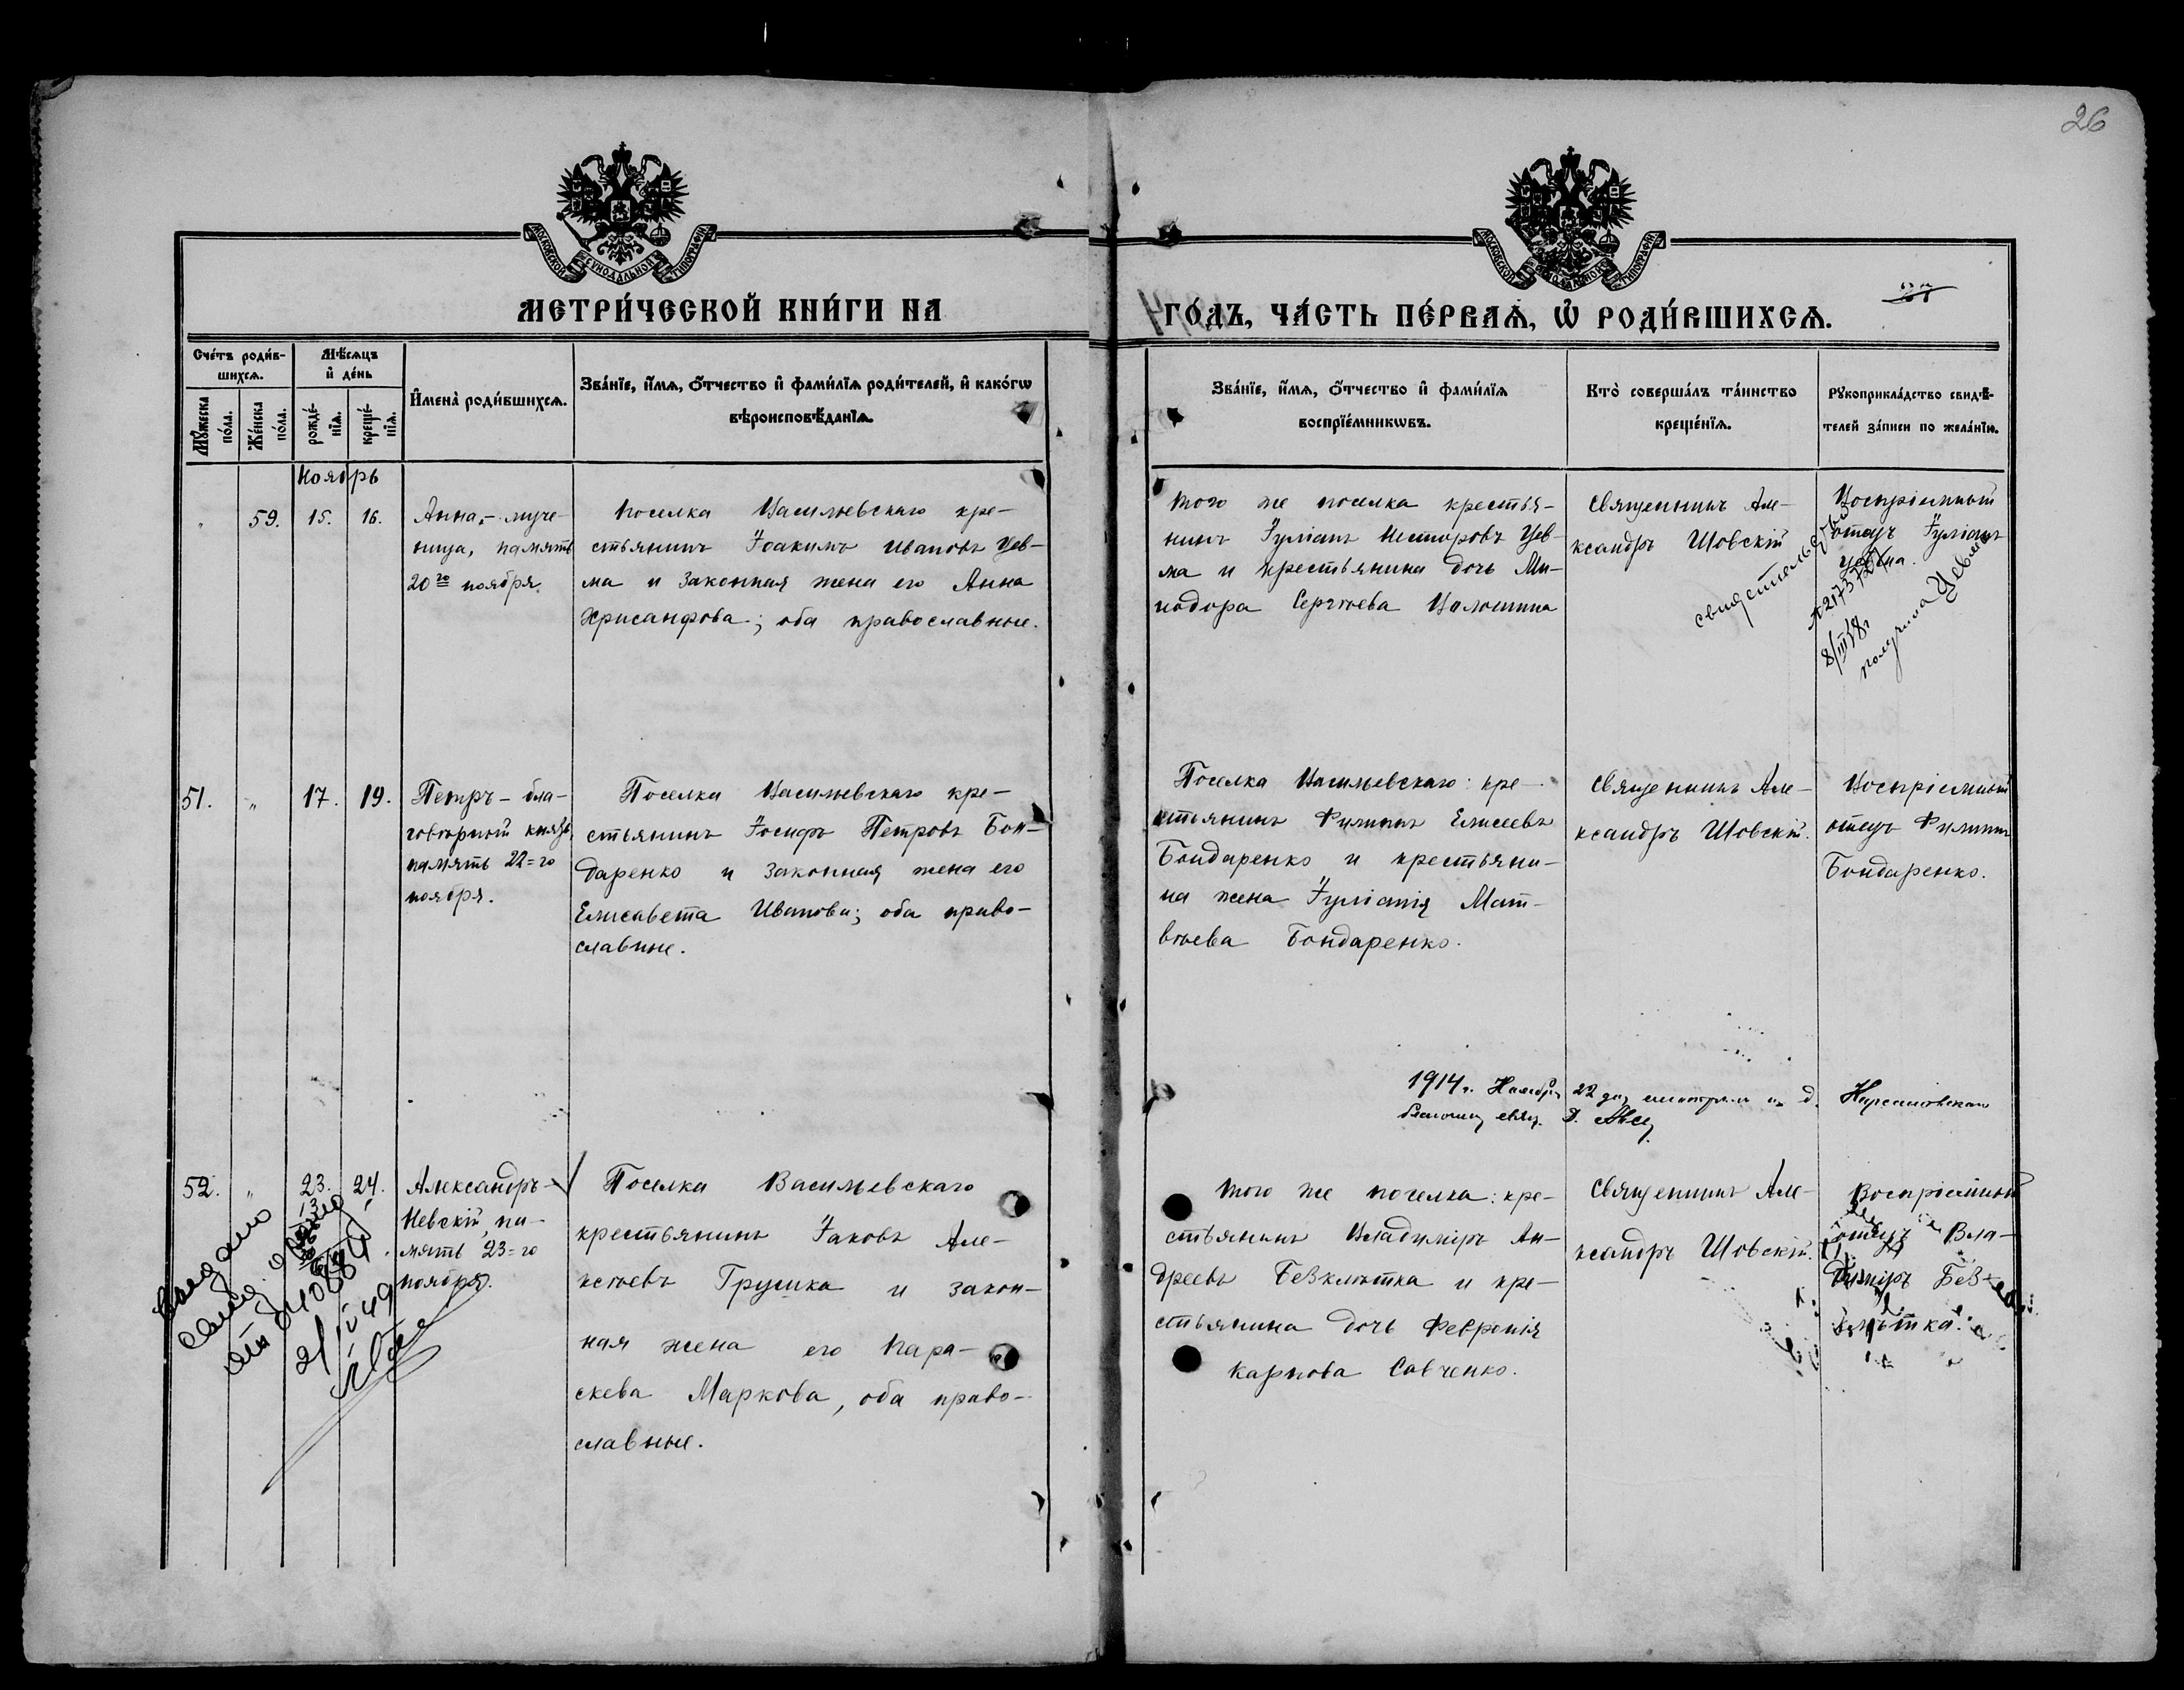 26
МОСКОВСКОЙ СУНОДАЛЬНОЙ ТИПОГРАФІИ
МОСКОВСКОЙ СУНОДАЛЬНОЙ ТИПОГРАФІИ
27
МЕТРИ́ЧЕСКОЙ КНИ́ГИ НА
ГО́ДЪ, ЧА́СТЬ ПЕ́РВАѦ, Ѡ҆ РОДИ́ВШИХСѦ.
Сче́тъ роди́в-
шихсѧ.
Мѣ́сѧцъ
и҆ де́нь
Мꙋ́жеска
по́ла.
Же́нска
по́ла.
рожде́-
нїѧ.
креще́-
нїѧ.
И҆мена̀ роди́вшихсѧ.
Зва́нїе, и҆́мѧ, ѻ҆́тчество и҆ фами́лїѧ роди́телей, и҆ како́гѡ
вѣроисповѣ́данїѧ.
Зва́нїе, и҆́мѧ, ѻ҆́тчество и҆ фами́лїѧ
воспрїе́мникѡвъ.
Кто̀ соверша́лъ та́инство
креще́нїѧ.
Рꙋкоприкла́дство свидѣ́-
телей за́писи по жела́нїю.
Ноябрь
" 59. 15. 16.
Анна,- муче-
ница, память
20го ноября.
Поселка Васильевскаго кре-
стьянинъ Іоакимъ Ивановъ Цев-
ма и законная жена его Анна
Хрисанфова; оба православные.
Того же поселка крестья-
нинъ Іуліанъ Несторовъ Цев-
ма и крестьянина дочь Ми-
нодора Сергѣева Волошина
Священникъ Але-
ксандръ Шовскій
Воспріемный
отецъ Іуліанъ
Цевма.
свидетельство
№ 217372
8/III 48г
получила Цевма
51. " 17. 19.
Петръ - бла-
говѣрный князь,
память 22=го
ноября.
Поселка Васильевскаго кре-
стьянинъ Іосифъ Петровъ Бон-
даренко и законная жена его
Елисавета Иванова; оба право-
славные.
Поселка Васильевскаго: кре-
стьянинъ Филиппъ Елисеевъ
Бондаренко и крестьяни-
на жена Іуліанія Мат-
вѣева Бондаренко.
Священникъ Але-
ксандръ Шовскій.
Воспріемный
отецъ Филиппъ
Бондаренко.
1914г. Ноября 22 дня
52. " 23. 24.
Александръ -
Невскій, па-
мять 23=го
ноября.
Поселка Васильевскаго
крестьянинъ Іаковъ Але-
ксѣевъ Грушка и закон-
ная жена его Пара-
скева Маркова, оба право-
славные.
Того же поселка: кре-
стьянинъ Владиміръ Ан-
дреевъ Безклѣтка и кре-
стьянина дочь Февронія
Карпова Савченко.
Священникъ Але-
ксандръ Шовскій.
Воспріемный
отецъ Вла-
диміръ Без-
клѣтка.
выдано